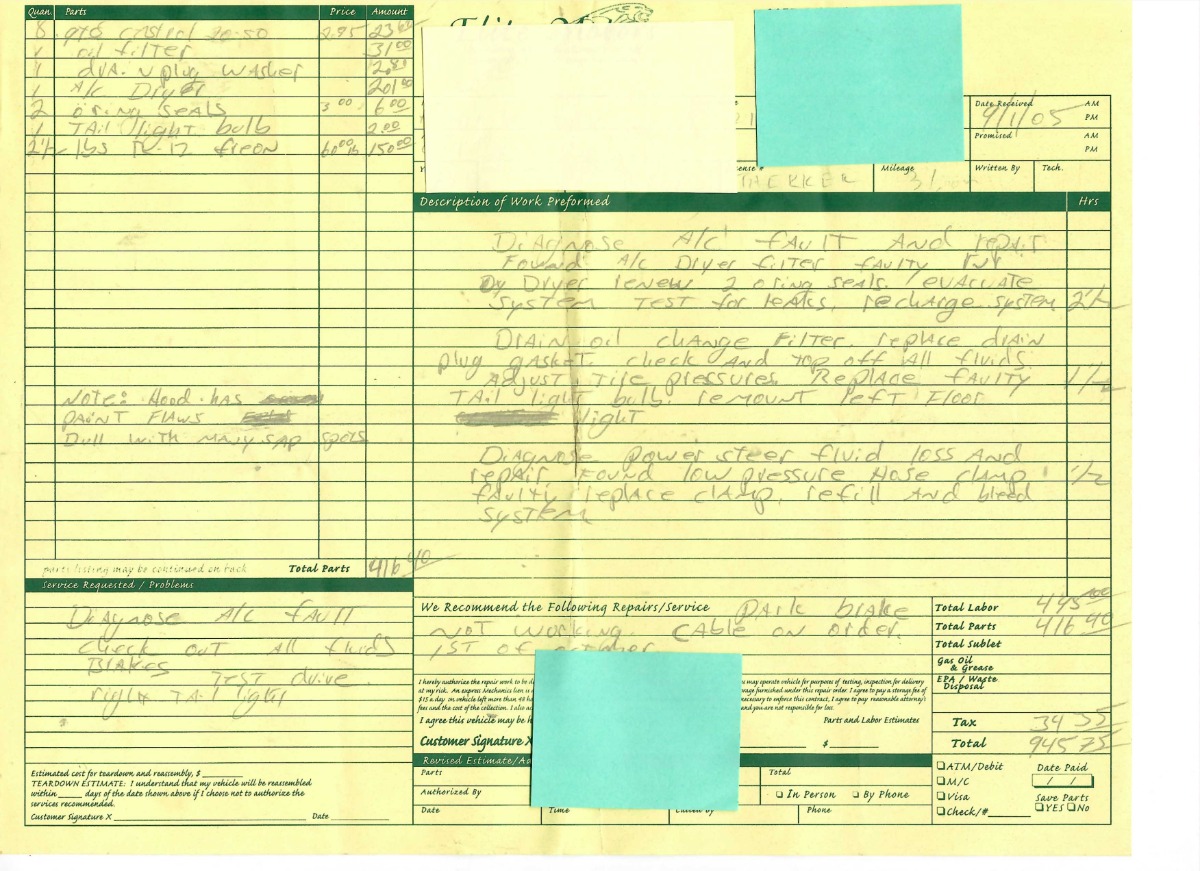 Quan. Parts Price Amount
8 qts castrol 20-50 2.95 23.60
1 oil filter 31.00
1 drain plug washer 2.80
1 A/C Dryer 201.00
2 oring seals 3.00 6.00
1 Tail light bulb 2.00
2 1/2 lbs R-12 freon 60.00 lb 150.00
Note: Hood has
paint flaws
Dull with many sap spots
parts listing may be continued on back Total Parts 416 40
Service Requested / Problems
Diagnose A/C fault
check out all fluids
Brakes Test drive
right Tail light
Estimated cost for teardown and reassembly, $
TEARDOWN ESTIMATE: I understand that my vehicle will be reassembled
within days of the date shown above if I choose not to authorize the
services recommended.
Customer Signature X Date
Date Received AM
9/1/05 PM
Promised AM
PM
Mileage Written By Tech.
Description of Work Preformed Hrs
Diagnose A/C fault And repair
Found A/C Dryer filter faulty
Dryer renew 2 oring seals. evacuate
system test for leaks. recharge system 2 1/2
Drain oil change Filter. replace drain
plug gasket check and top off all fluids
Adjust Tire pressures. Replace faulty 1 1/2
Tail light bulb. remount left Floor
light
Diagnose power steer fluid loss And
repair. Found low pressure Hose clamp 1/2
faulty replace clamp. refill And bleed
system
We Recommend the Following Repairs/Service Park brake
Not working. Cable on order.
1st of
I hereby authorize the repair work to be
may operate vehicle for purposes of testing, inspection for delivery
at my risk. An express Mechanics lien is
furnished under this repair order. I agree to pay a storage fee of
$15 a day on vehicle left more than 48
necessary to enforce this contract, I agree to pay reasonable attorney's
fees and the cost of the collection. I also
and you are not responsible for loss.
I agree this vehicle may be Parts and Labor Estimates
Customer Signature X $
Revised Estimate/
Parts Total
Authorized By In Person By Phone
Date Time Called By Phone
Total Labor 495.00
Total Parts 416 40
Total Sublet
Gas Oil
& Grease
EPA / Waste
Disposal
Tax 34 35
Total 945 75
ATM/Debit Date Paid
M/C / /
Visa Save Parts
Check/# YES No